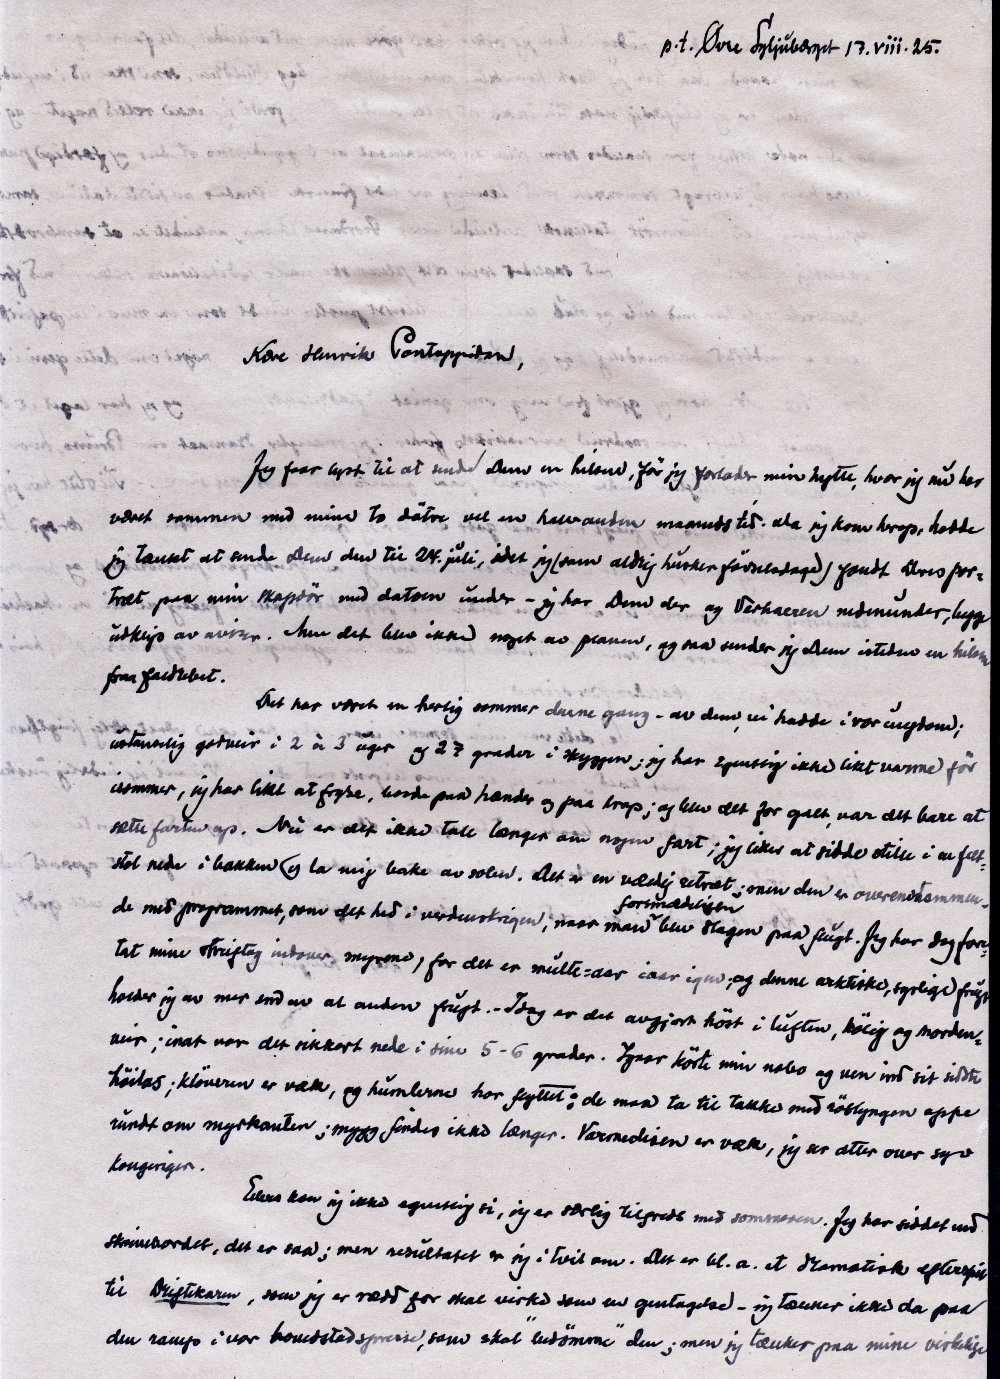 p.t. Øvre Sgljuberget 17.viii.25.
Kære Henrik Pontoppidan,
Jeg faar lyst til at sende Dem en hilsen, før jeg forlader min hytte, hvor jeg nu har
været sammen med mine to døtre vel en halvanden maaneds tid. Da jeg kom herop, hadde
jeg tænkt at sende Dem den til 24. juli, idet jeg (som aldrig husker fødselsdage) fandt Deres por-
træt paa min skapdör med datoen under – jeg har Dem der og Verhaeren nedenunder, begge
utklip av aviser. Men det blev ikke noget av planen, og saa sender jeg Dem isteden en hilsen
fra fjeldet.
Det har været en herlig sommer denne gang – av dem, vi hadde i vor ungdom;
ustanselig godveir i 2 à 3 uger og 27 grader i skyggen; jeg har egentlig ikke likt varme før
isommer, jeg har likt at fryse, baade paa hænder og paa krop; og blev det for galt, var det bare at
sætte farten op. Nu er det ikke tale længer om nogen fart; jeg liker at sidde stille i en felt-
stol nede i bakken og la mig bake av solen. Det er en vældig retræt; men den er overensstemmen-
de med programmet, som det hed i verdenskrigen, naar man formodentlig blev slagen paa flugt. Jeg har dog fore-
tat mine streiftog indover myrene, for det er multe-aar iaar igen; og denne arktiske, syrlige frugt
holder jeg av mer end av al anden frugt. – Idag er det avgjort höst i luften, kölig og norden-
veir; inat var det sikkert nede i sine 5-6 grader. Igaar körte min nabo og ven ind sit sidste
höilas; klöveren er væk, og humlerne har flyttet; de maa ta til takke med röslyngen oppe
rundt om myrkanten; mygg findes ikke længer. Varmedisen er væk, jeg ser atter over syv
kongeriger.
Ellers kan jeg ikke egentlig si, jeg er særlig tilfreds med sommeren. Jeg har siddet ved
skrivebordet, det er saa; men resultatet er jeg i tvil om. Det er bl. a. et dramatisk efterspil
til Driftekaren, som jeg er ræd for skal virke som en gentagelse – jeg tænker ikke da paa
den ramp i vor hovedstadspresse, som skal "bedömme" den; men jeg tænker paa mine virkelige